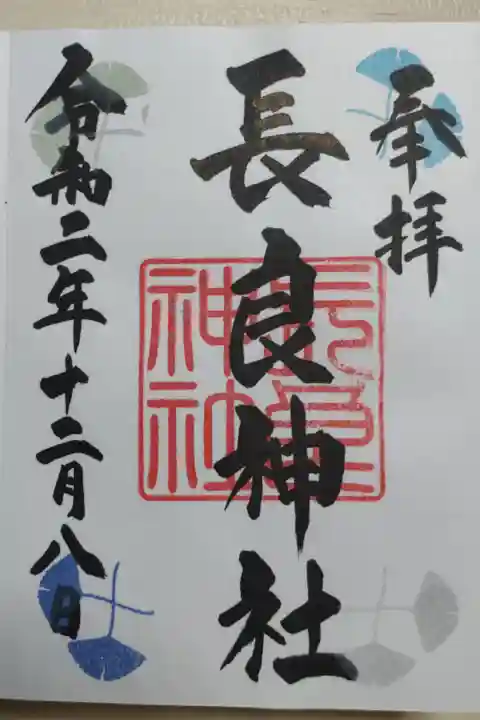 奉拝
長良神社
長良
神社
令和二年十二月八日